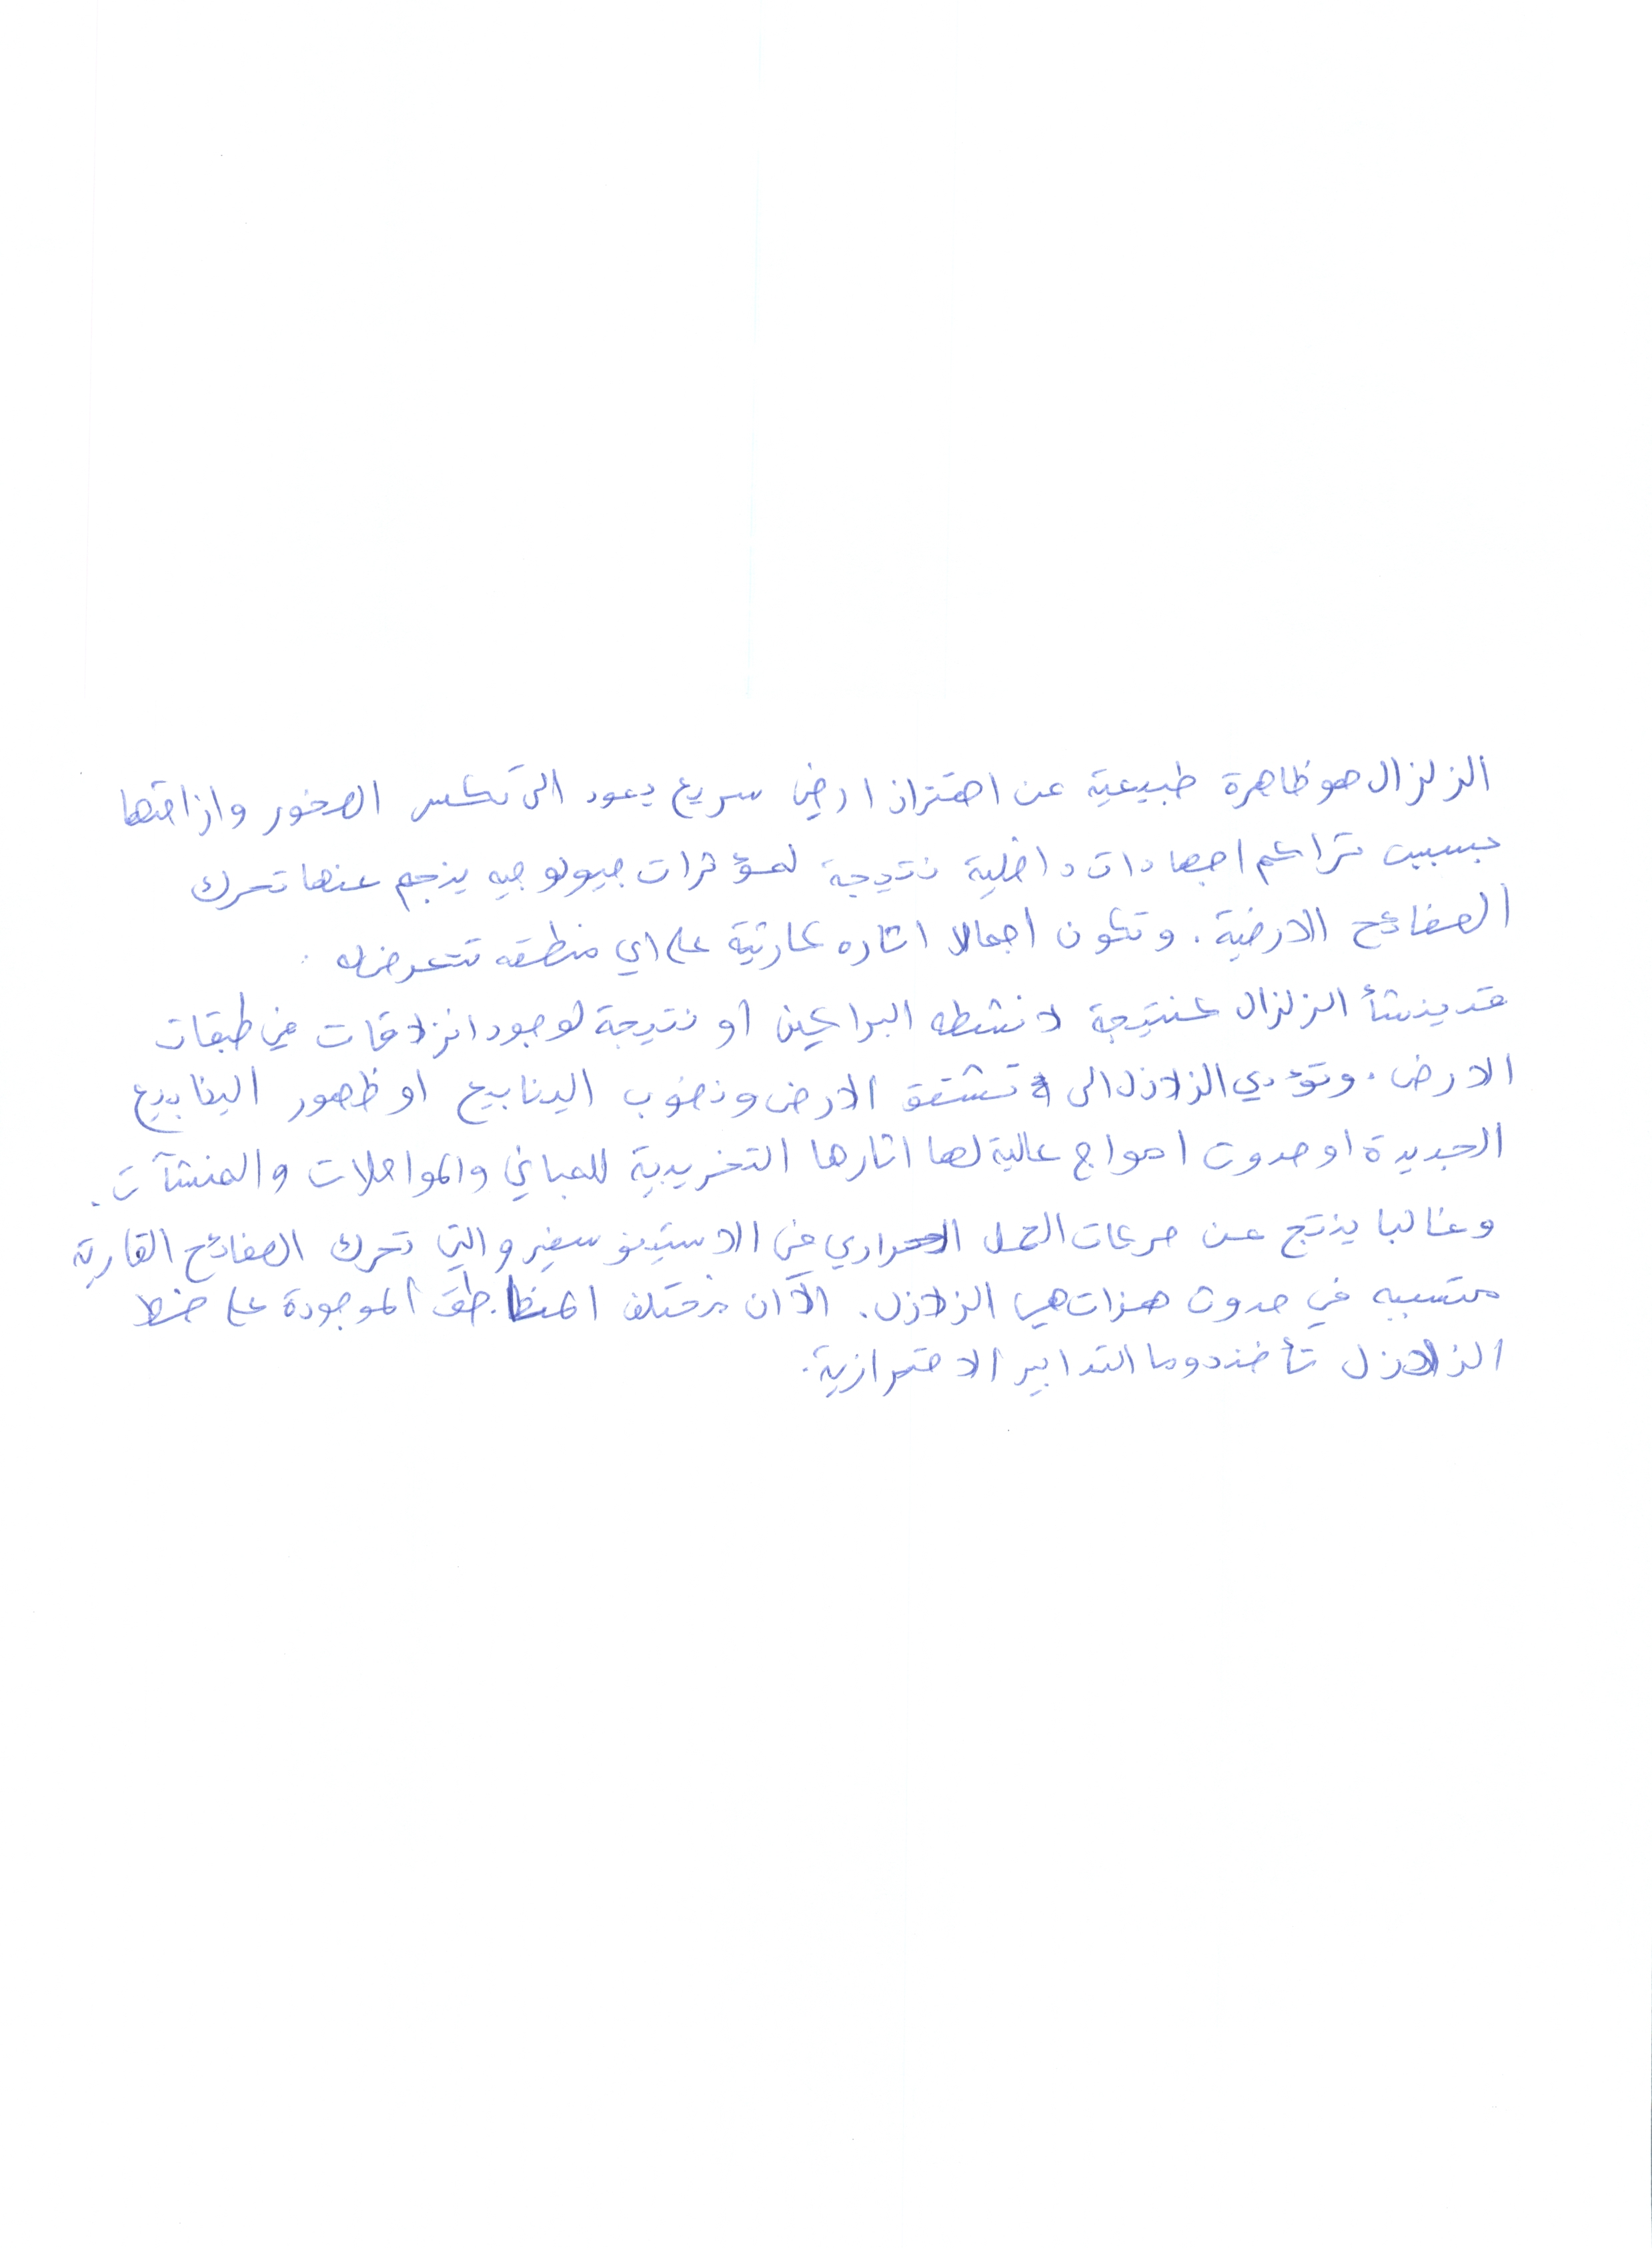 الزلزال هو ظاهرة طبيعية عن اهتزاز ارضي سريع يعود الى تكسر الصخور وازاحتها
بسبب تراكم اجهادات داخلية نتيجة لمؤثرات جيولوجيه ينجم عنها تحرك
الصفائح الارضية . وتكون اجمالا اثاره كارثية على اي منطقه تتعرض له
قد ينشأ الزلزال كنتيجة لانشطه البراكين او نتيجة لوجود انزلاقات في طبقات
الارض . وتؤدي الزلازل الى تشقق الارض ونضوب الينابيع او ظهور الينابيع
الجديدة او حدوث امواج عالية لها اثارها التخريبية للمباني والمواصلات والمنشآت .
وغالبا ينتج عن حركات الحمل الحراري في الاستينوسفير والتي تحرك الصفائح القارية
متسببه في حدوث هزات هي الزلازل . الا ان مختلف المناطق الموجودة على خط
الزلازل تأخذ دوما التدابير الاحترازية .